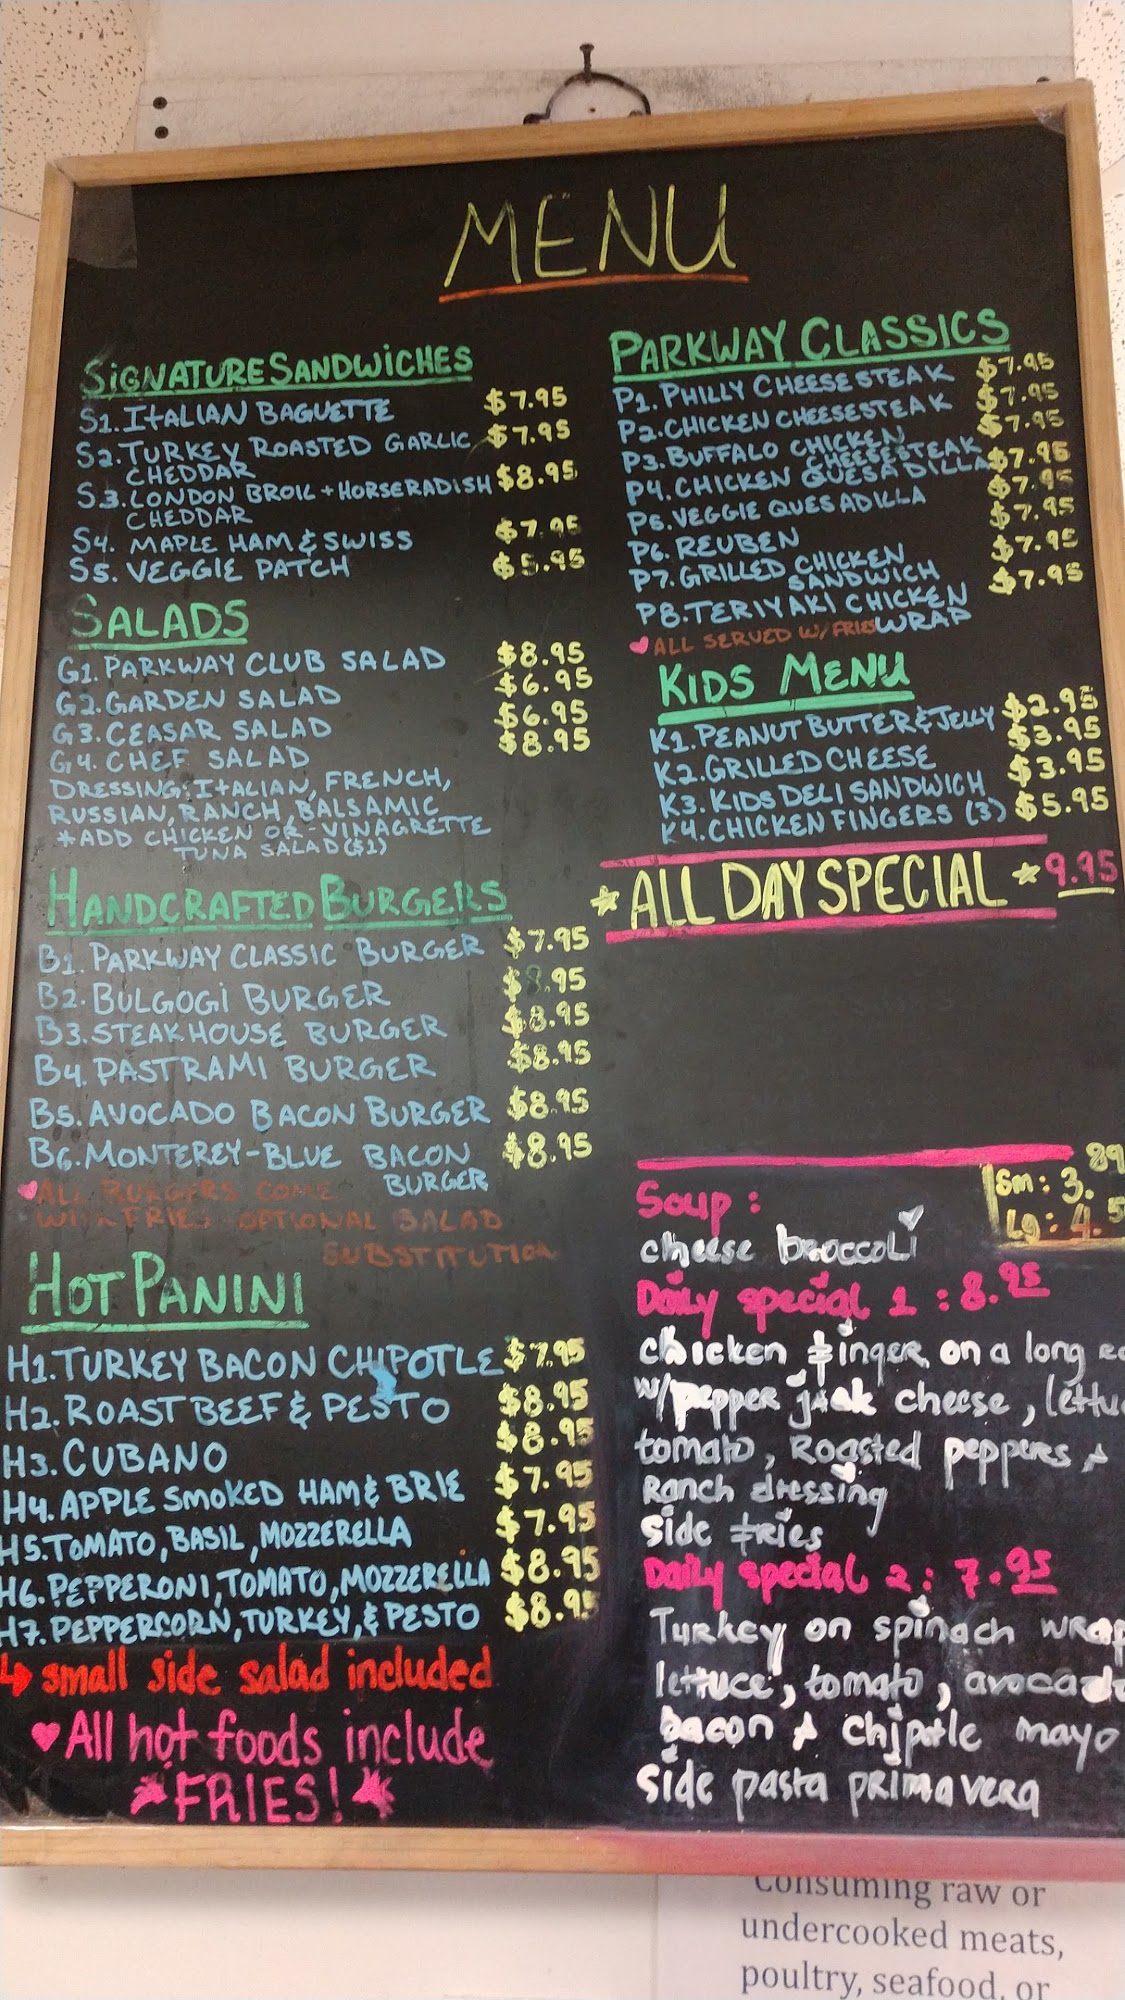 MENU
SIGNATURE SANDWICHES
S1. ITALIAN BAGUETTE $7.95
S2. TURKEY ROASTED GARLIC $7.95
CHEDDAR
S3. LONDON BROIL + HORSERADISH $8.95
CHEDDAR
S4. MAPLE HAM & SWISS $7.95
S5. VEGGIE PATCH $5.95
SALADS
G1. PARKWAY CLUB SALAD $8.95
G2. GARDEN SALAD $6.95
G3. CEASAR SALAD $6.95
G4. CHEF SALAD $8.95
DRESSING: ITALIAN, FRENCH,
RUSSIAN, RANCH, BALSAMIC
*ADD CHICKEN OR - VINAGRETTE
TUNA SALAD ($1)
HANDCRAFTED BURGERS
B1. PARKWAY CLASSIC BURGER $7.95
B2. BULGOGI BURGER $8.95
B3. STEAKHOUSE BURGER $8.95
B4. PASTRAMI BURGER $8.95
B5. AVOCADO BACON BURGER $8.95
B6. MONTEREY-BLUE BACON $8.95
BURGER
ALL BURGERS COME
WITH FRIES - OPTIONAL SALAD
SUBSTITUTION
HOT PANINI
H1. TURKEY BACON CHIPOTLE $7.95
H2. ROAST BEEF & PESTO $8.95
H3. CUBANO $8.95
H4. APPLE SMOKED HAM & BRIE $7.95
H5. TOMATO, BASIL, MOZZERELLA $7.95
H6. PEPPERONI, TOMATO, MOZZERELLA $8.95
H7. PEPPERCORN, TURKEY, & PESTO $8.95
small side salad included
All hot foods include
FRIES!
PARKWAY CLASSICS
P1. PHILLY CHEESESTEAK $7.95
P2. CHICKEN CHEESESTEAK $7.95
P3. BUFFALO CHICKEN $7.95
CHEESESTEAK
P4. CHICKEN QUESADILLA $7.95
P5. VEGGIE QUESADILLA $7.95
P6. REUBEN $7.95
P7. GRILLED CHICKEN $7.95
SANDWICH
P8. TERIYAKI CHICKEN $7.95
WRAP
ALL SERVED W/ FRIES
KIDS MENU
K1. PEANUT BUTTER & JELLY $2.95
K2. GRILLED CHEESE $3.95
K3. KIDS DELI SANDWICH $3.95
K4. CHICKEN FINGERS (3) $5.95
ALL DAY SPECIAL 9.95
Soup:
Sm: 3.89
Lg: 4.5
cheese broccoli
Daily special 1 : 8.95
chicken finger on a long
w/pepper jack cheese, lettuc
tomato, Roasted pepperes &
Ranch dressing
side fries
Daily special 2 : 7.95
Turkey on spinach wrap
lettuce, tomato, avocado
bacon & chipotle mayo
side pasta primavera
Consuming raw or
undercooked meats,
poultry, seafood, or